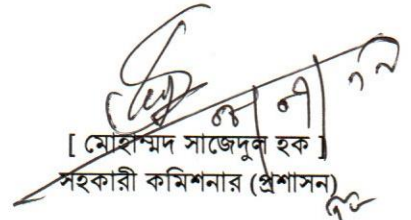 [ মোহাম্মদ সাজেদুল হক ]
সহকারী কমিশনার (প্রশাসন)